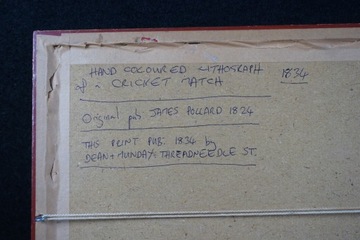 HAND COLOURED LITHOGRAPH 1834
of a CRICKET MATCH
Original pub JAMES POLLARD 1824
THIS PRINT PUB: 1834 by
DEAN + MUNDAY: THREADNEEDLE ST.